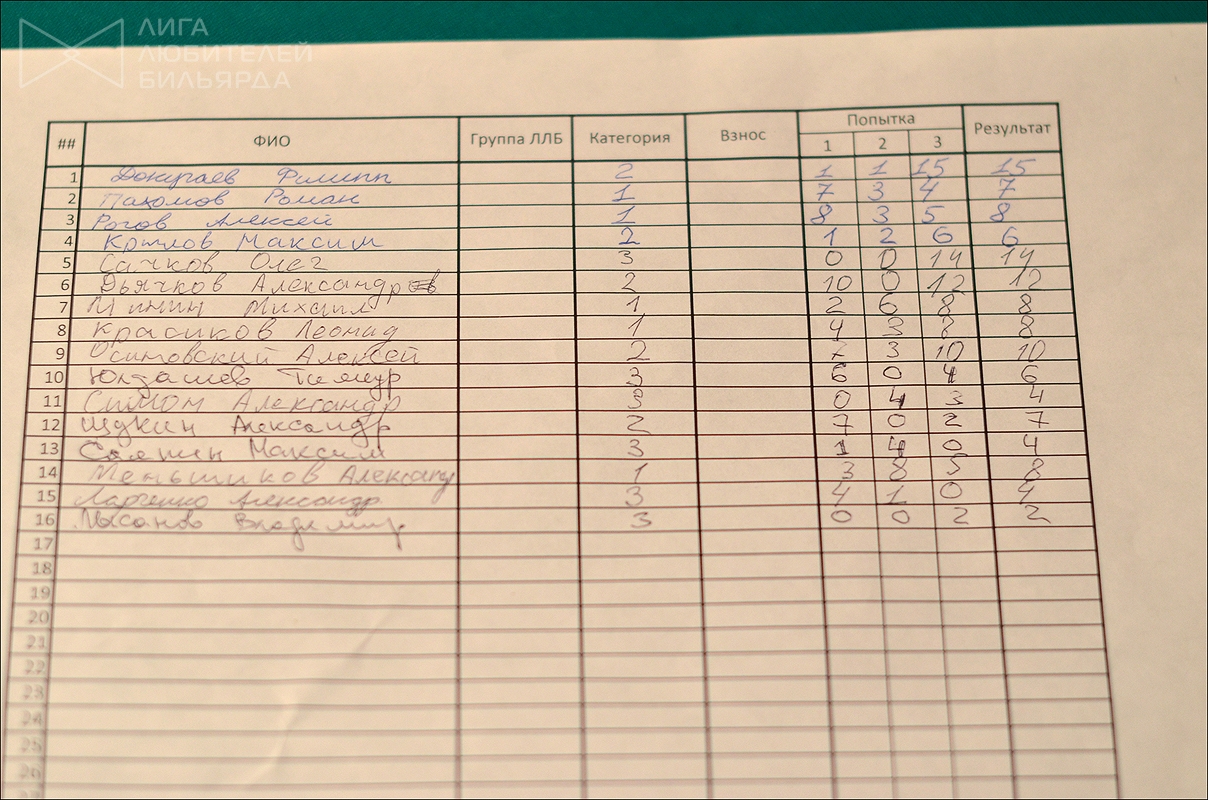 ЛИГА
ЛЮБИТЕЛЕЙ
БИЛЬЯРДА
## ФИО Группа ЛЛБ Категория Взнос Попытка Результат
1 2 3
1 Докучаев Филипп 2 1 1 15 15
2 Пахомов Роман 1 7 3 4 7
3 Рогов Алексей 1 8 3 5 8
4 Крылов Максим 2 1 2 6 6
5 Сачков Олег 3 0 0 14 14
6 Дьячков Александр 2 10 0 12 12
7 Минин Михаил 1 2 6 8 8
8 Красиков Леонид 1 4 3 8 8
9 Осиповский Алексей 2 7 3 10 10
10 Юлдашев Тимур 3 6 0 4 6
11 Симон Александр 3 0 4 3 4
12 Щукин Александр 2 7 0 2 7
13 Максим 3 1 4 0 4
14 Меньшиков Александр 1 3 8 5 8
15 Александр 3 4 1 0 4
16 Владимир 3 0 0 2 2
17
18
19
20
21
22
23
24
25
26